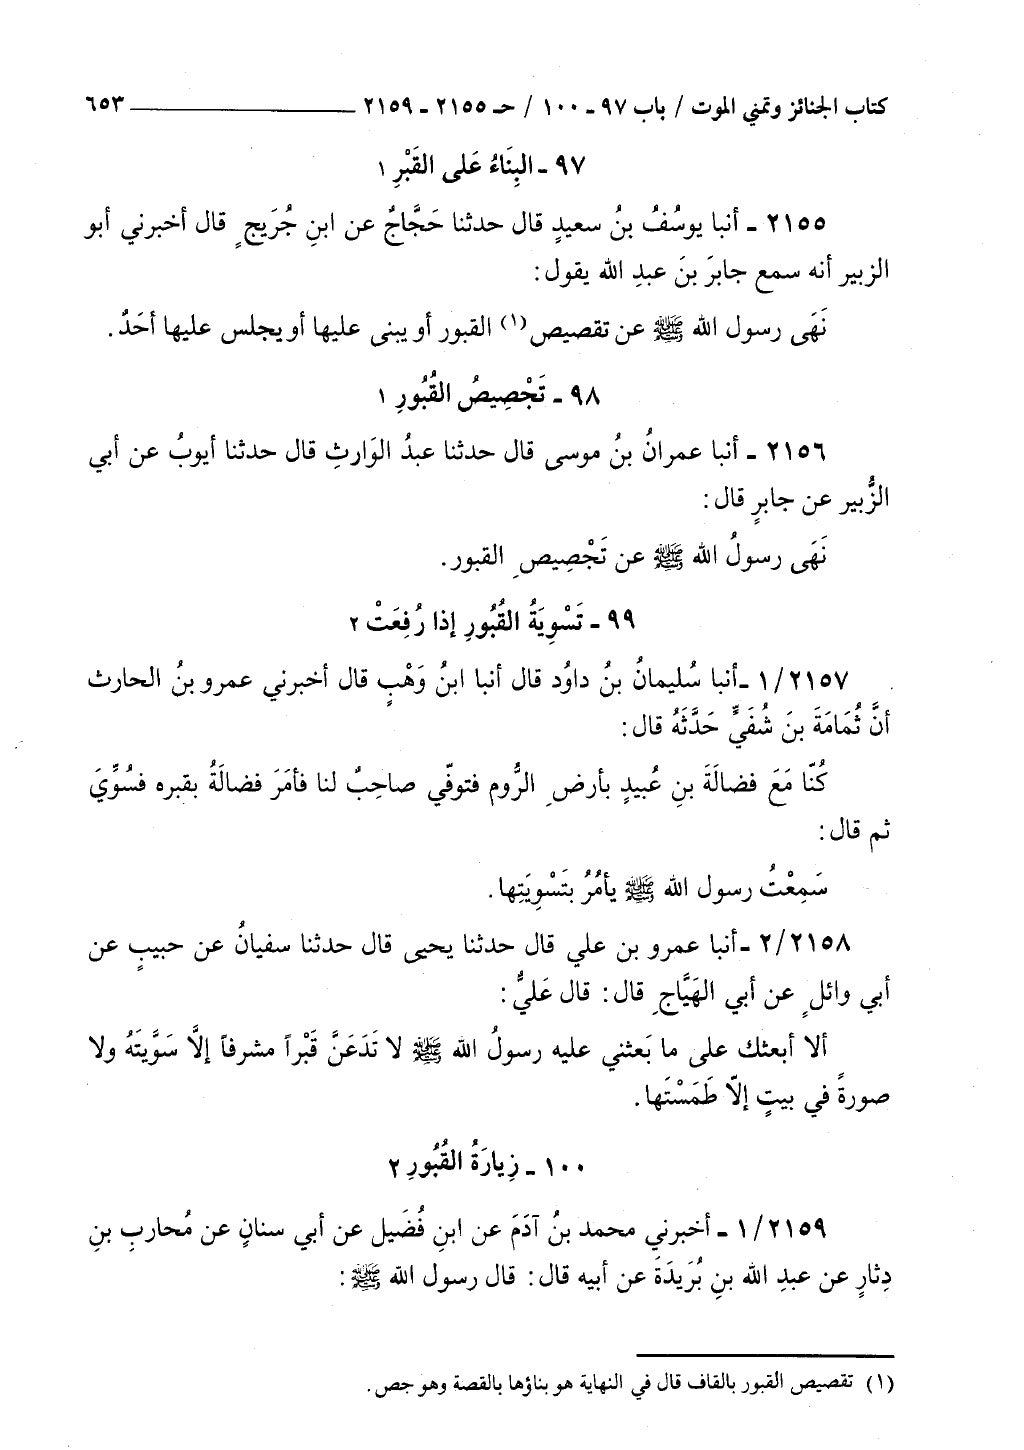 كتاب الجنائز وتمني الموت / باب ٩٧ - ١٠٠ / حـ ٢١٥٥ - ٢١٥٩ ٦٥٣
٩٧ - البِنَاءُ عَلى القَبْرِ ١
٢١٥٥ - أنبا يوسُفُ بنُ سعيدٍ قال حدثنا حَجَّاجٌ عن ابنِ جُرَيجٍ قال أخبرني أبو
الزبير أنه سمع جابرَ بنَ عبدِ الله يقول:
نَهَى رسول الله ﷺ عن تقصيص(١) القبور أو يبنى عليها أو يجلس عليها أحَدٌ.
٩٨ - تَجْصِيصُ القُبُورِ ١
٢١٥٦ - أنبا عمرانُ بنُ موسى قال حدثنا عبدُ الوَارثِ قال حدثنا أيوبُ عن أبي
الزُّبير عن جابرٍ قال:
نَهَى رسولُ الله ﷺ عن تَجْصِيصِ القبور.
٩٩ - تَسْوِيَةُ القُبُورِ إذا رُفِعَتْ ٢
١/٢١٥٧ - أنبا سُليمانُ بنُ داوُد قال أنبا ابنُ وَهْبٍ قال أخبرني عمرو بنُ الحارث
أنَّ ثُمَامَةَ بنَ شُفَيٍّ حَدَّثَهُ قال:
كُنّا مَعَ فضالَةَ بنِ عُبيدٍ بأرضِ الرُّوم فتوفّي صاحِبٌ لنا فأمَرَ فضالَةُ بقبره فسُوِّيَ
ثم قال:
سَمِعْتُ رسول الله ﷺ يأمُرُ بتَسْوِيَتِها.
٢/٢١٥٨ - أنبا عمرو بن علي قال حدثنا يحيى قال حدثنا سفيانُ عن حبيبٍ عن
أبي وائلٍ عن أبي الهَيَّاجِ قال: قال عَليٌّ:
ألا أبعثك على ما بَعثني عليه رسولُ الله ﷺ لا تَدَعَنَّ قَبْراً مشرفاً إلَّا سَوَّيتَهُ ولا
صورةً في بيتٍ إلّا طَمَسْتَها.
١٠٠ - زِيارَةُ القُبُورِ ٢
١/٢١٥٩ - أخبرني محمد بنُ آدَمَ عن ابنِ فُضَيل عن أبي سنانٍ عن مُحاربِ بنِ
دِثارٍ عن عبدِ الله بنِ بُرَيدَةَ عن أبيه قال: قال رسول الله ﷺ:
(١) تقصيص القبور بالقاف قال في النهاية هو بناؤها بالقصة وهو جص.